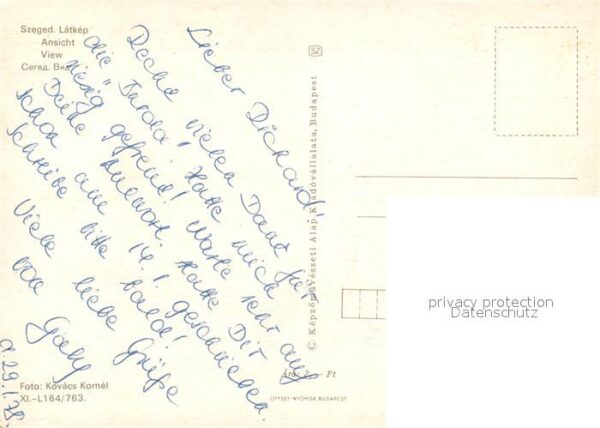 Szeged. Látkép
Ansicht
View
Сегед. Вид
Lieber Richard!
Recht vielen Dank für
die "Burda". Hatte mich
riesig gefreut! Warte sehr auf
Deine Antwort. Hatte Dir
schon am 14.1. geschrieben.
Schreibe bitte bald!
Viele liebe Grüße
von Gaby
d. 29.1.78.
SZ
© Képzőművészeti Alap Kiadóvállalata, Budapest
privacy protection
Datenschutz
Ára: 2,— Ft
Foto: Kovács Kornél
XI.–L164/763.
OFFSET-NYOMDA BUDAPEST